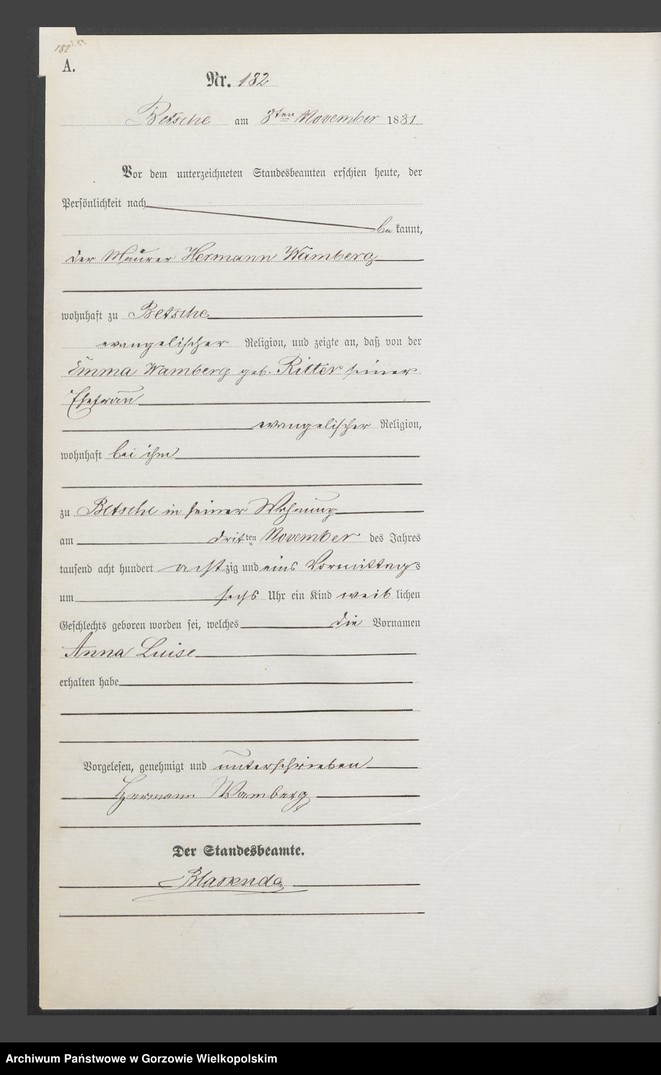 A.
Nr. 182
Betsche am 3ten November 1881
Vor dem unterzeichneten Standesbeamten erschien heute, der
Persönlichkeit nach
be kannt,
der Maurer Hermann Wamberg
wohnhaft zu Betsche
evangelischer Religion, und zeigte an, daß von der
Emma Wamberg geb. Ritter seiner
Ehefrau
evangelischer Religion,
wohnhaft bei ihm
zu Betsche in seiner Wohnung
am dritten November des Jahres
tausend acht hundert achtzig und eins Vormittags
um sechs Uhr ein Kind weib lichen
Geschlechts geboren worden sei, welches die Vornamen
Anna Luise
erhalten habe
Vorgelesen, genehmigt und unterschrieben
Hermann Wamberg
Der Standesbeamte.
Archiwum Państwowe w Gorzowie Wielkopolskim